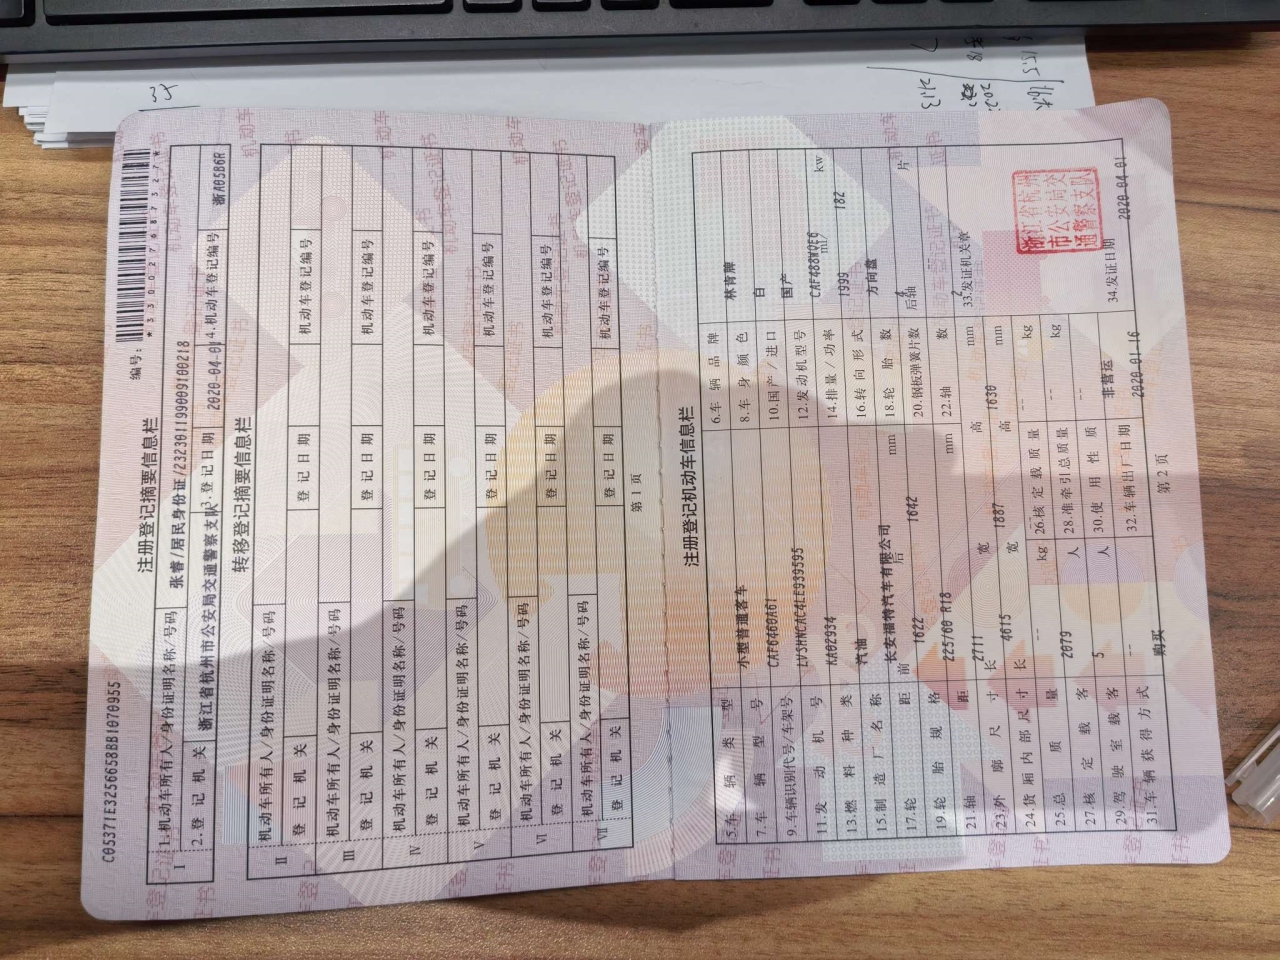 C05371E3256658BB1070955
注册登记摘要信息栏
编号:
*330027687327*
I
1.机动车所有人/身份证明名称/号码 张睿/居民身份证/232301199009100218
2.登记机关 浙江省杭州市公安局交通警察支队 3.登记日期 2020-04-01 4.机动车登记编号 浙A05B6R
转移登记摘要信息栏
II
机动车所有人/身份证明名称/号码
登记机关 登记日期 机动车登记编号
III
机动车所有人/身份证明名称/号码
登记机关 登记日期 机动车登记编号
IV
机动车所有人/身份证明名称/号码
登记机关 登记日期 机动车登记编号
V
机动车所有人/身份证明名称/号码
登记机关 登记日期 机动车登记编号
VI
机动车所有人/身份证明名称/号码
登记机关 登记日期 机动车登记编号
VII
机动车所有人/身份证明名称/号码
登记机关 登记日期 机动车登记编号
第1页
注册登记机动车信息栏
5.车辆类型 小型普通客车 6.车辆品牌 林肯牌
7.车辆型号 CAF6460A61 8.车身颜色 白
9.车辆识别代号/车架号 LVSHNCAC4LE939595 10.国产/进口 国产
11.发动机号 KA02934 12.发动机型号 CAF488WQE6
13.燃料种类 汽油 14.排量/功率 1999 ml/ 182 kw
15.制造厂名称 长安福特汽车有限公司 16.转向形式 方向盘
17.轮距 前 1622 后 1642 mm 18.轮胎数 4
19.轮胎规格 225/60 R18 20.钢板弹簧片数 后轴 片
21.轴距 2711 mm 22.轴数 2
23.外廓尺寸 长 4615 宽 1887 高 1630 mm
24.货厢内部尺寸 长 -- 宽 高 mm
33.发证机关章
浙江省杭州市公安局交通警察支队
25.总质量 2079 kg 26.核定载质量 -- kg
27.核定载客 5 人 28.准牵引总质量 -- kg
29.驾驶室载客 -- 人 30.使用性质 非营运
31.车辆获得方式 购买 32.车辆出厂日期 2020-01-16 34.发证日期 2020-04-01
第2页